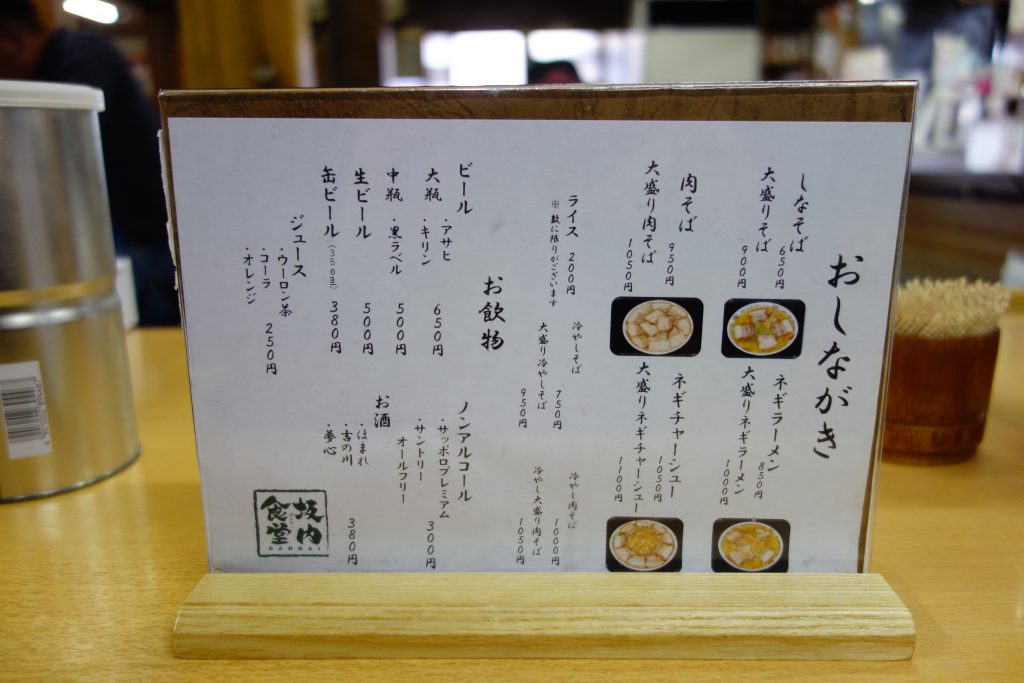 おしながき
しなそば 650円
大盛りそば 900円
ネギラーメン 850円
大盛りネギラーメン 1000円
肉そば 950円
大盛り肉そば 1050円
ネギチャーシュー 1050円
大盛りネギチャーシュー 1100円
ライス 200円
※数に限りがございます
冷やしそば 750円
大盛り冷やしそば 950円
冷やし肉そば 1000円
冷やし大盛り肉そば 1050円
お飲物
ビール
大瓶 ・アサヒ
・キリン 650円
中瓶 ・黒ラベル 500円
生ビール 500円
缶ビール(350ml) 380円
ジュース
・ウーロン茶
・コーラ
・オレンジ 250円
ノンアルコール
・サッポロプレミアム
・サントリー
オールフリー 300円
お酒
・ほまれ
・吉の川
・夢心 380円
坂内
食堂
BANNAI